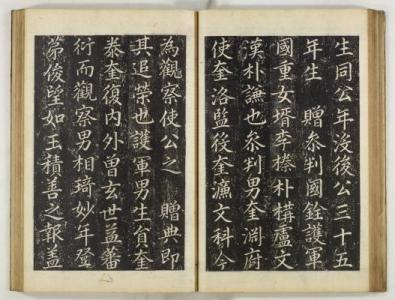 生同公年没後公三十五
年生 贈叅判國銓護軍
國重女壻李榛朴構盧文
漢朴謙也叅判男奎淵府
使奎洛監役奎濂文科今
為觀察使公之 贈典即
其追榮也護軍男生員奎
泰奎復內外曽玄世益蕃
衍而觀察男相琦妙年登
第俊望如玉積善之報盖